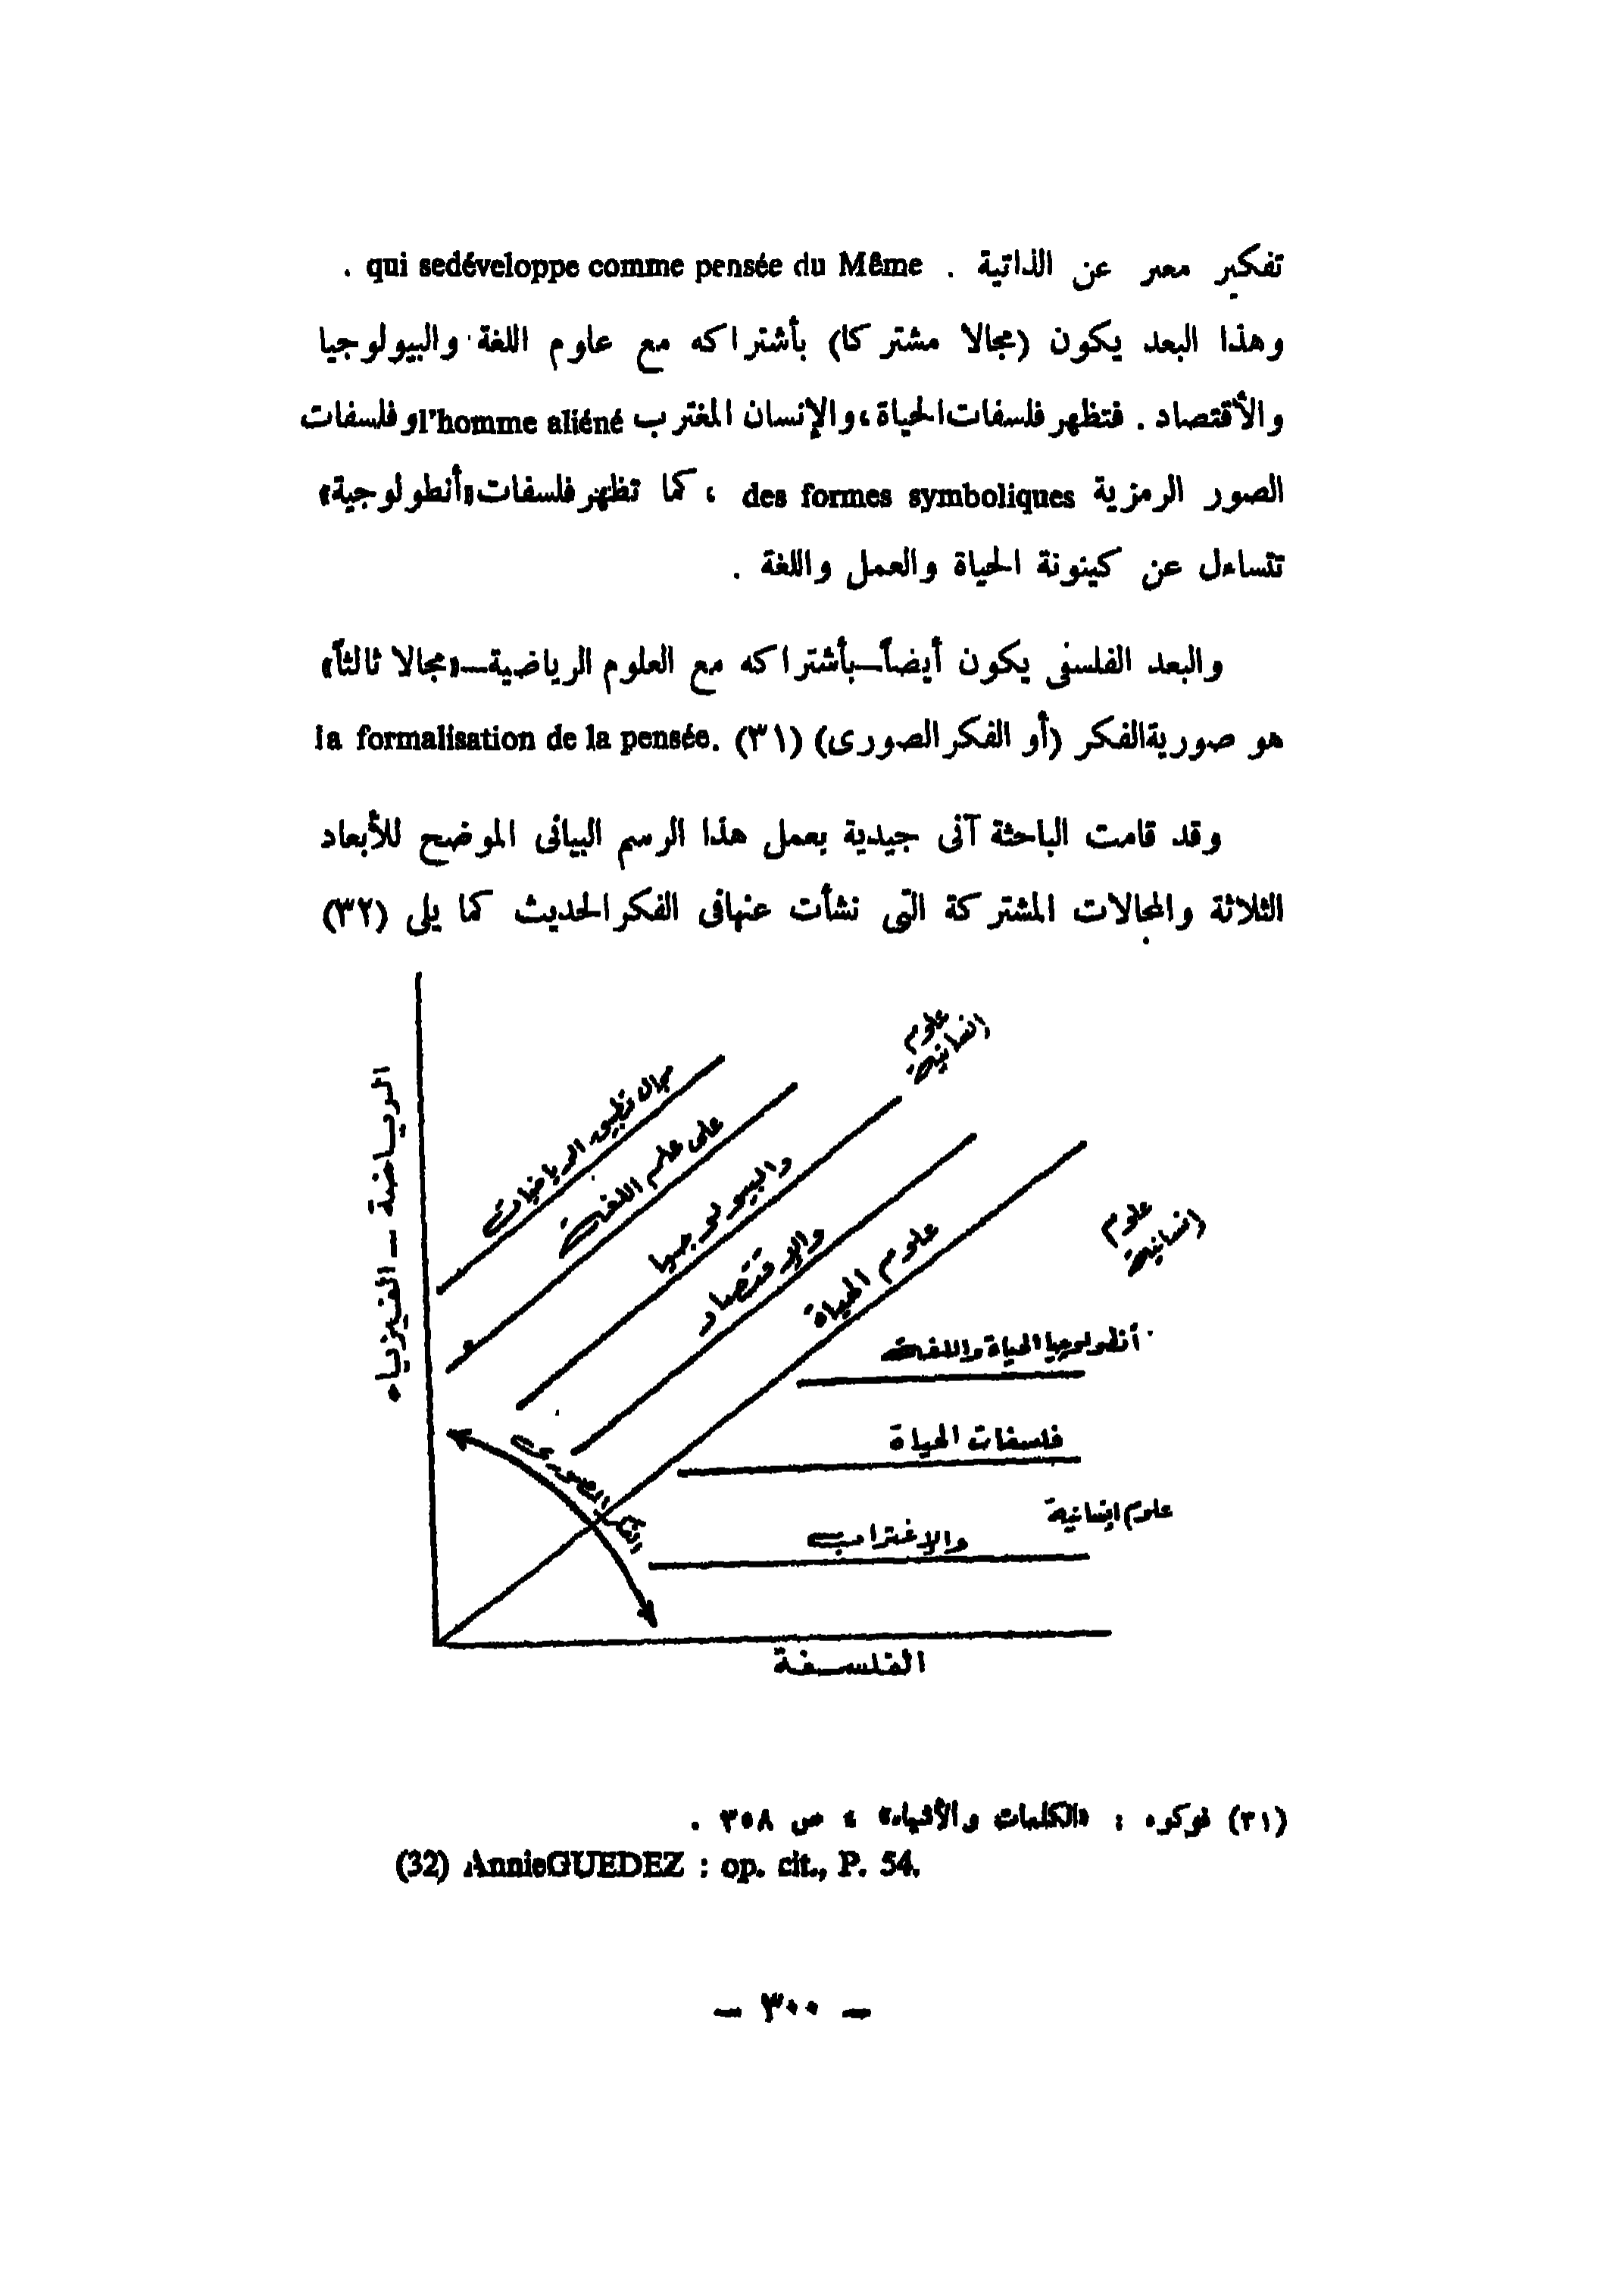 تفكير معبر عن الذاتية . qui sedéveloppe comme pensée du Même .
وهذا البعد يكون (مجالا مشتركا) بأشتراكه مع علوم اللغة والبيولوجيا
والأقتصاد . فتظهر فلسفات الحياة ، والإنسان المغترب l'homme aliéné وفلسفات
الصور الرمزية des formes symboliques ، كما تظهر فلسفات «أنطولوجية»
تتساءل عن كينونة الحياة والعمل واللغة .
والبعد الفلسفى يكون أيضاً—بأشتراكه مع العلوم الرياضية—«مجالا ثالثاً»
هو صورية الفكر (أو الفكر الصورى) (٣١) .la formalisation de la pensée
وقد قامت الباحثة آنى جيدية بعمل هذا الرسم البيانى الموضح للأبعاد
الثلاثة والمجالات المشتركة التى نشأت عنها فى الفكر الحديث كما يلى (٣٢)
علوم
انسانية
مجال تطبيق الرياضيات
على علم اللغة
والبيولوجيا
والإقتصاد
علوم الحياة
الرياضة — الفيزياء
علوم
انسانية
أنطولوجيا الحياة واللغة
فلسفات الحياة
علوم انسانية
والإغتراب
الفكر الصورى
الفلسفة
(٣١) فوكوه : «الكلمات والأشياء» ، ص ٣٥٨ .
(32) AnnieGUEDEZ : op. cit., P. 54.
— ٣٠٠ —